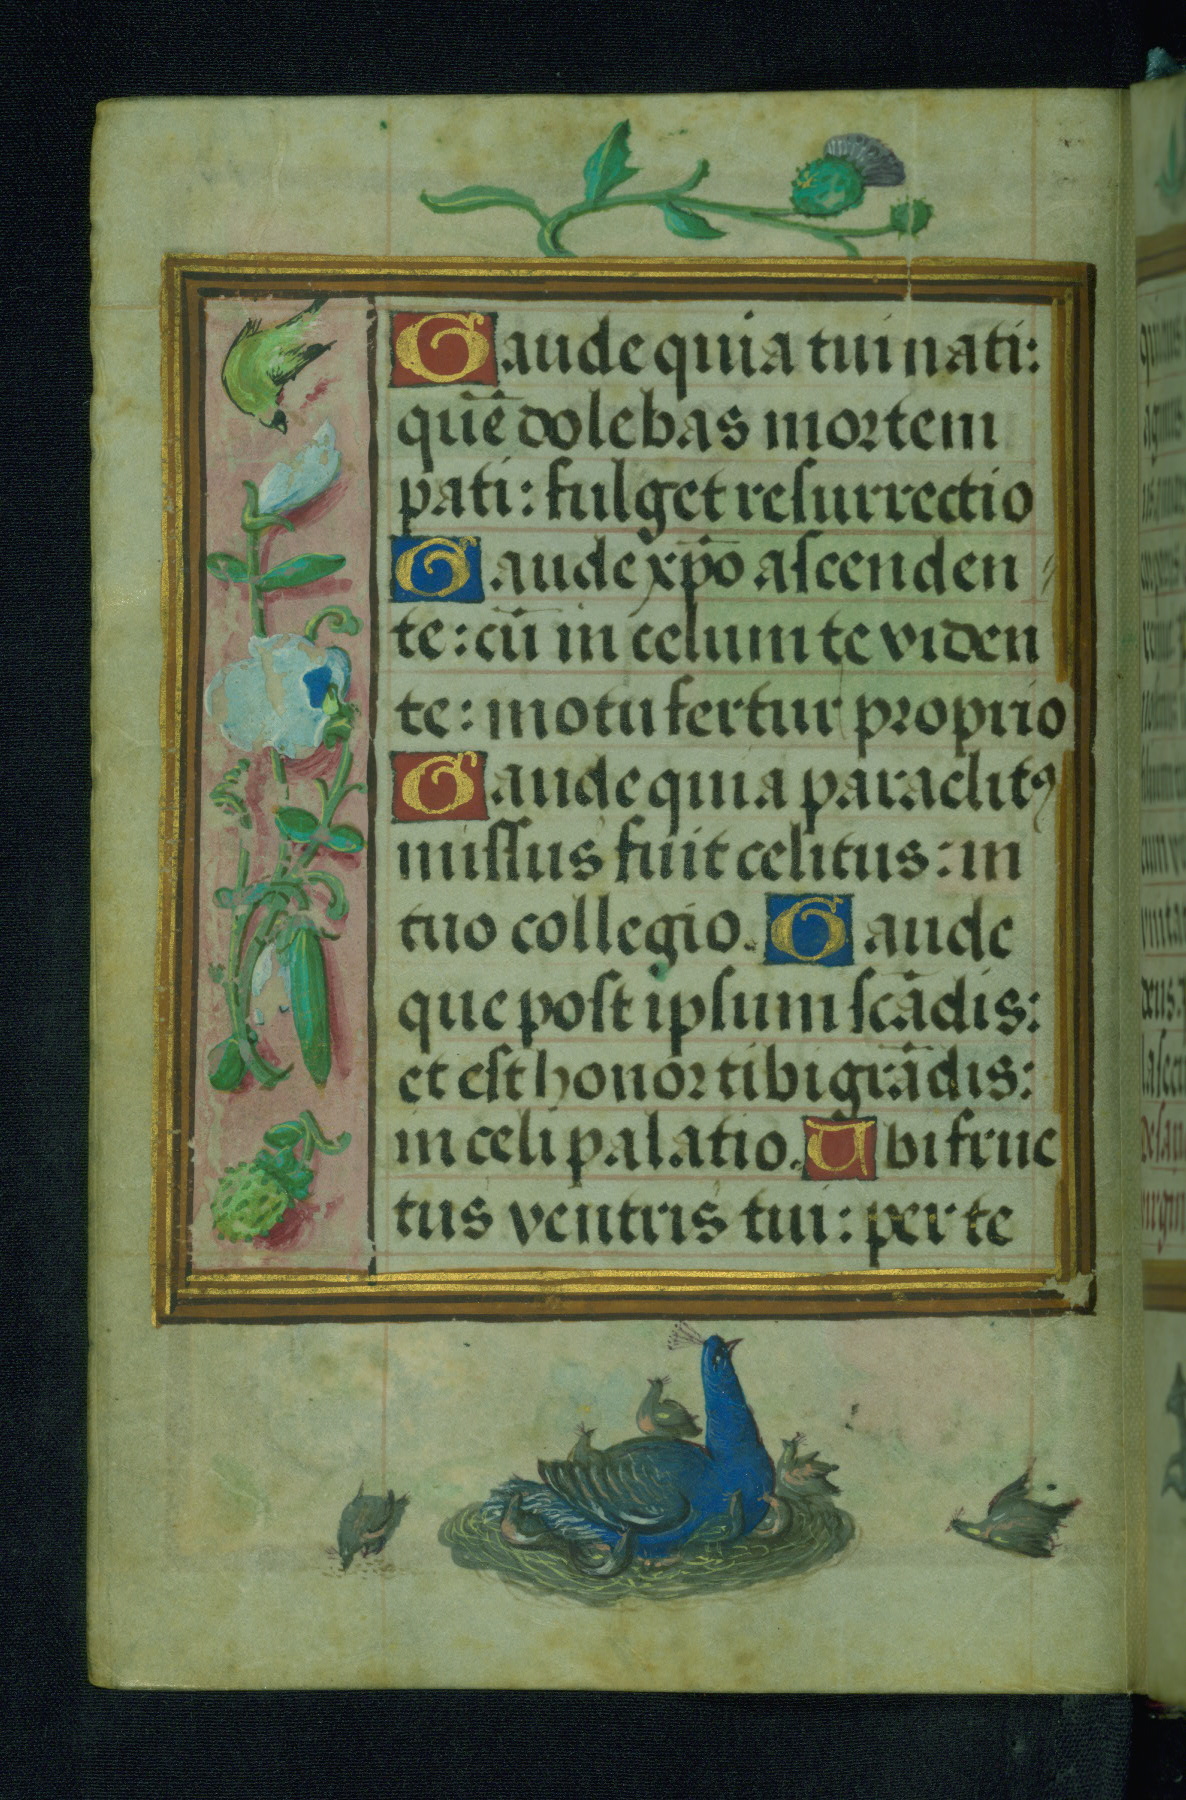 Gaude quia tui nati:
quē dolebas mortem
pati: fulget resurrectio
Gaude xp̄o ascenden
te: cū in celum te viden
te: motu fertur proprio
Gaude quia paraclitꝰ
missus fuit celitus: in
tuo collegio. Gaude
que post ipsum scādis:
et est honor tibi grādis:
in celi palatio. Ubi fruc
tus ventris tui: per te